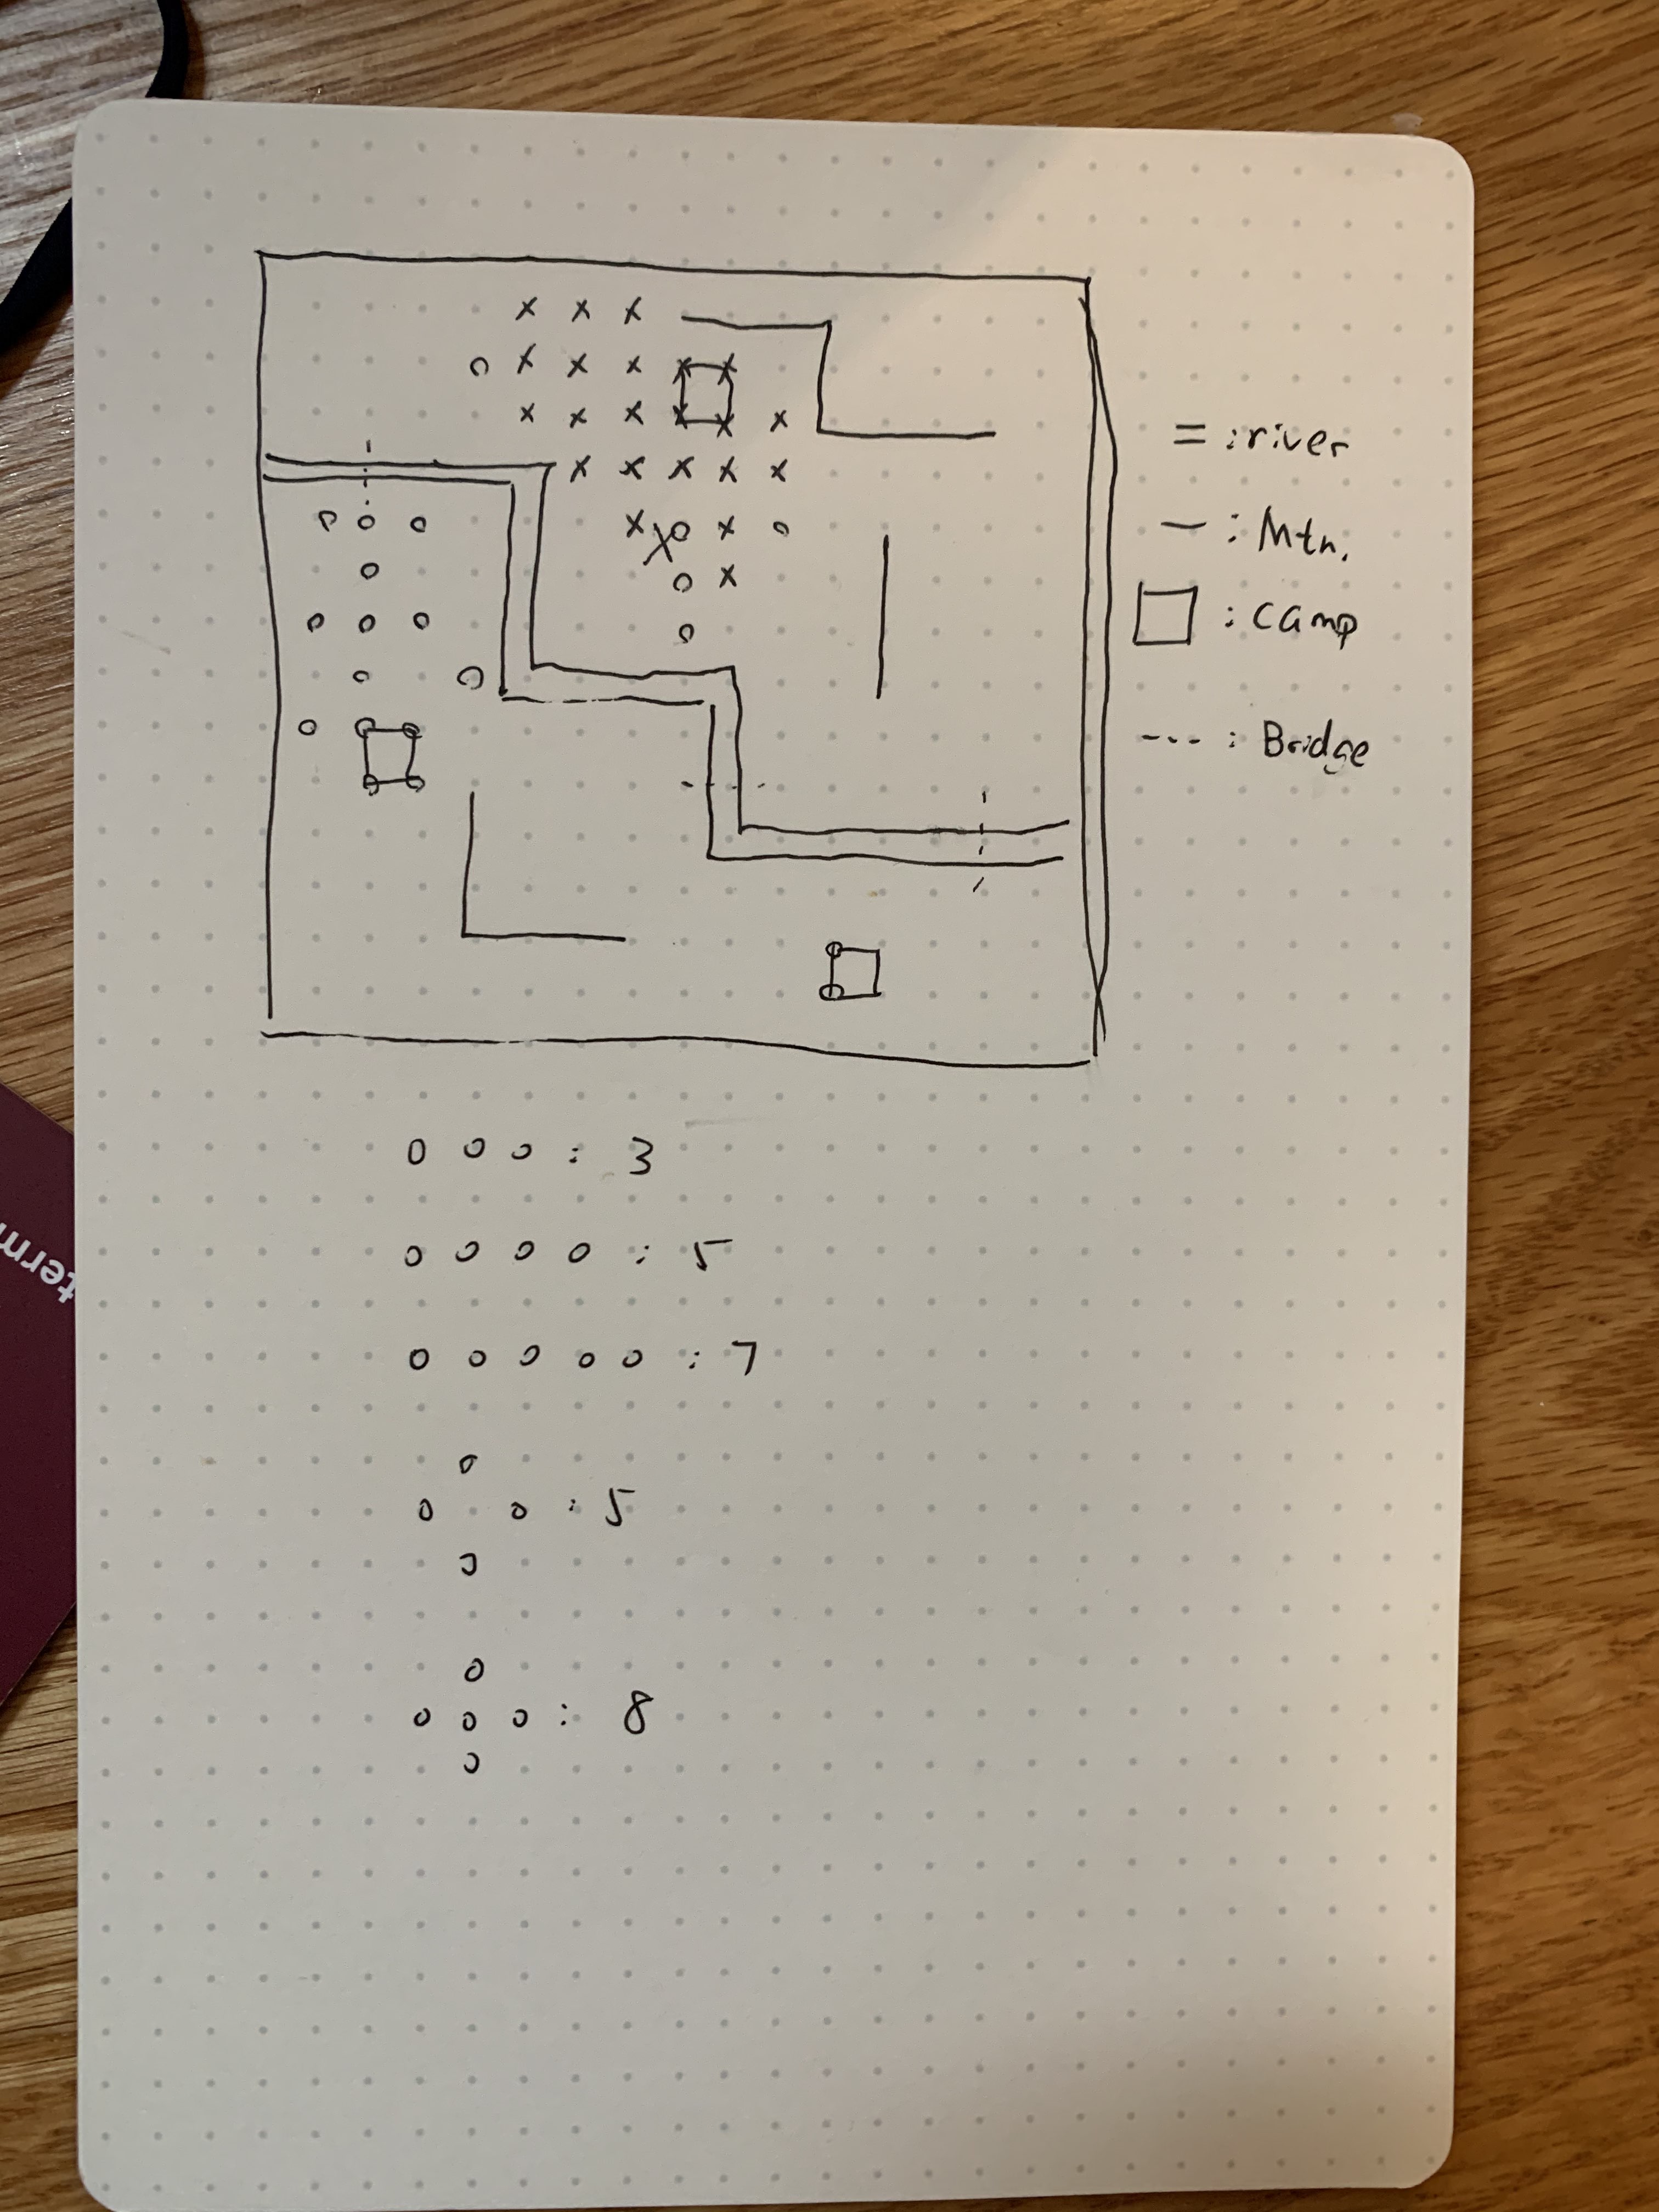 = : river
— : Mtn.
: camp
--- : Bridge
o o o : 3
o o o o : 5
o o o o o : 7
o
o o : 5
o
o
o o o : 8
o
term